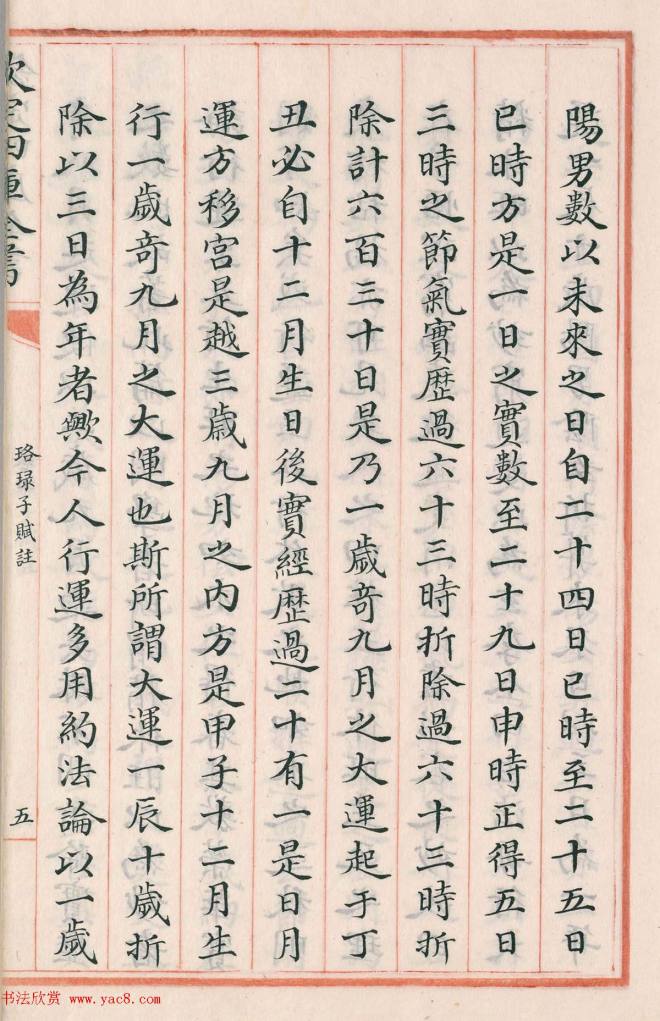 陽男數以未來之日自二十四日巳時至二十五日
巳時方是一日之實數至二十九日申時正得五日
三時之節氣實歴過六十三時折除過六十三時折
除計六百三十日是乃一歲竒九月之大運起于丁
丑必自十二月生日後實經歴過二十有一是日月
運方移宮是越三歲九月之内方是甲子十二月生
行一歲竒九月之大運也斯所謂大運一辰十歲折
除以三日為年者歟今人行運多用約法論以一歲
欽定四庫全書
珞琭子賦註
五
书法欣赏 www.yac8.com